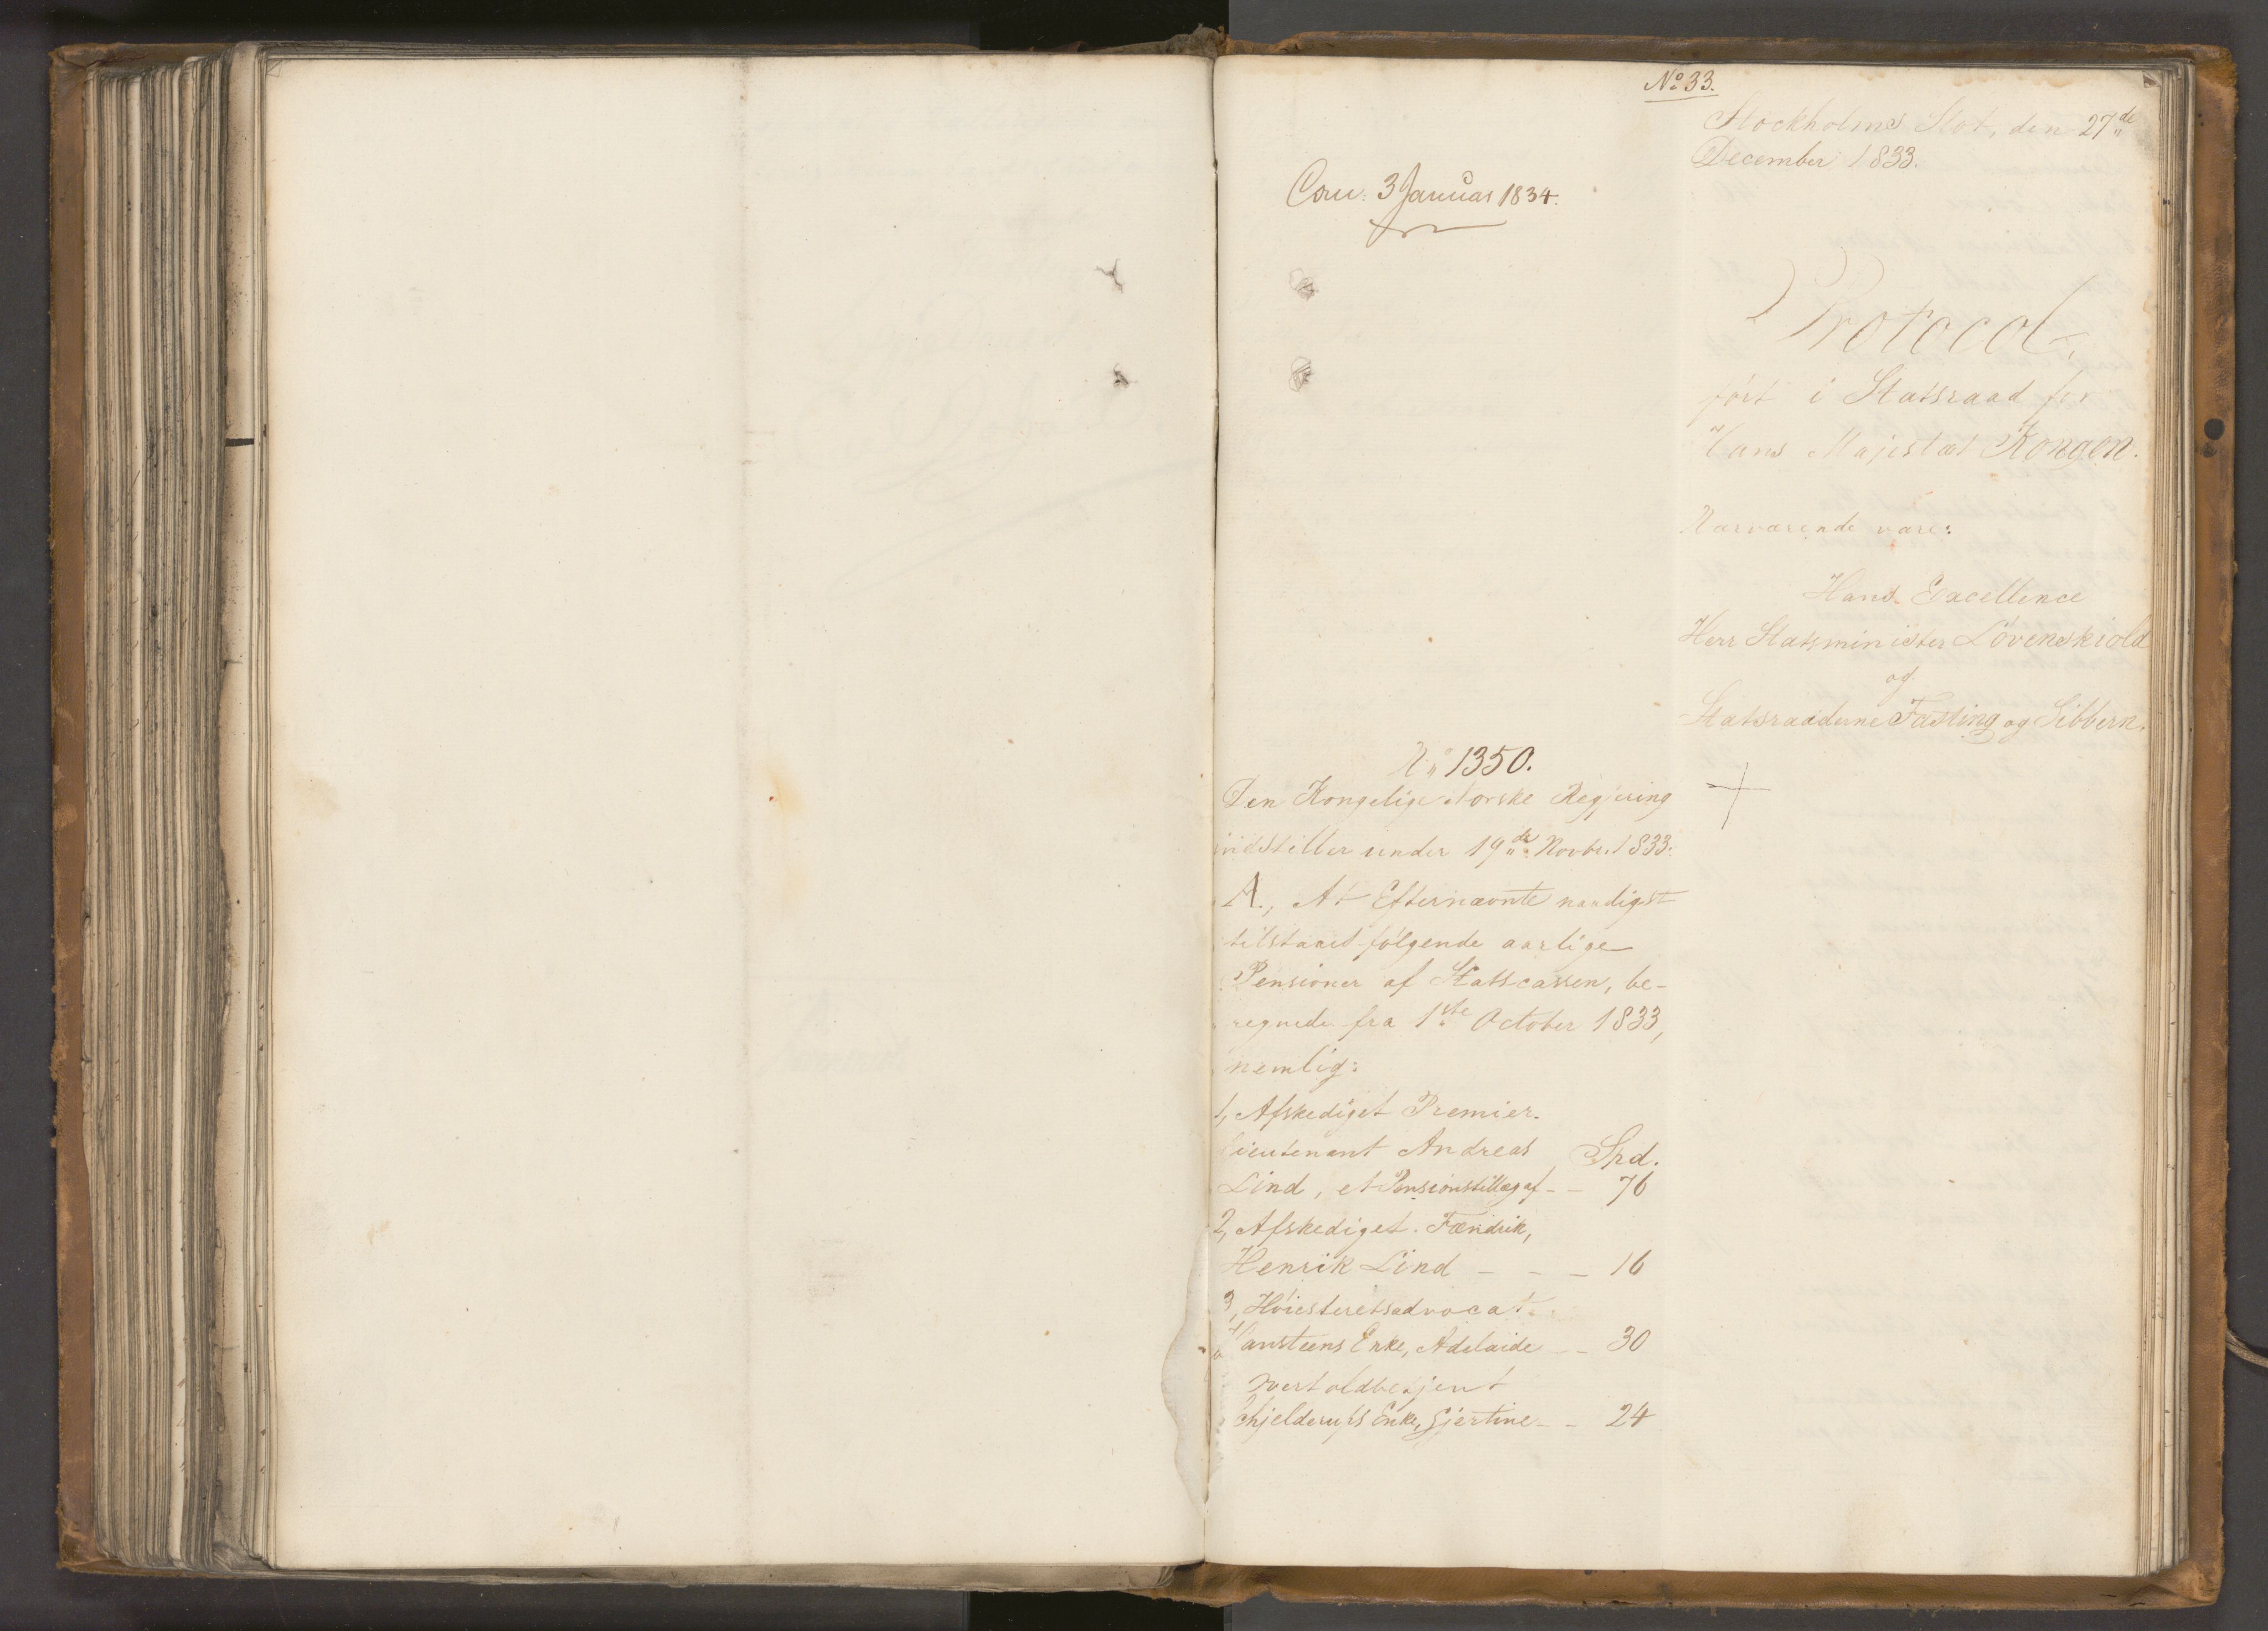 No 33.
Stockholms Slot, den 27de
December 1833.
Conu: 3 Januar 1834.
Protocol,
ført i Statsraad for
Hans Majestæt Kongen.
Nærværende vare:
Hans Excellence
Herr Statsminister Løvenskiold
og
Statsraaderne Fasting og Sibbern.
No 1350.
Den Kongelige Norske Regjering
indstiller under 19de Novbr. 1833.
A., At Efternævnte naadigst
tilstaaes følgende aarlige
Pensioner af Statscassen, be-
regnede fra 1ste October 1833,
nemlig:
1, Afskediget Premier-
lieutenant Andreas Spd.
Lind, et Pensionstillæg af - - 76
2, Afskediget Fændrik,
Henrik Lind - - - 16
3, Høiesteretsadvocat
Hansteens Enke, Adelaide - - 30
overtoldbetjent
Schjelderups Enke, Gjertine - - 24